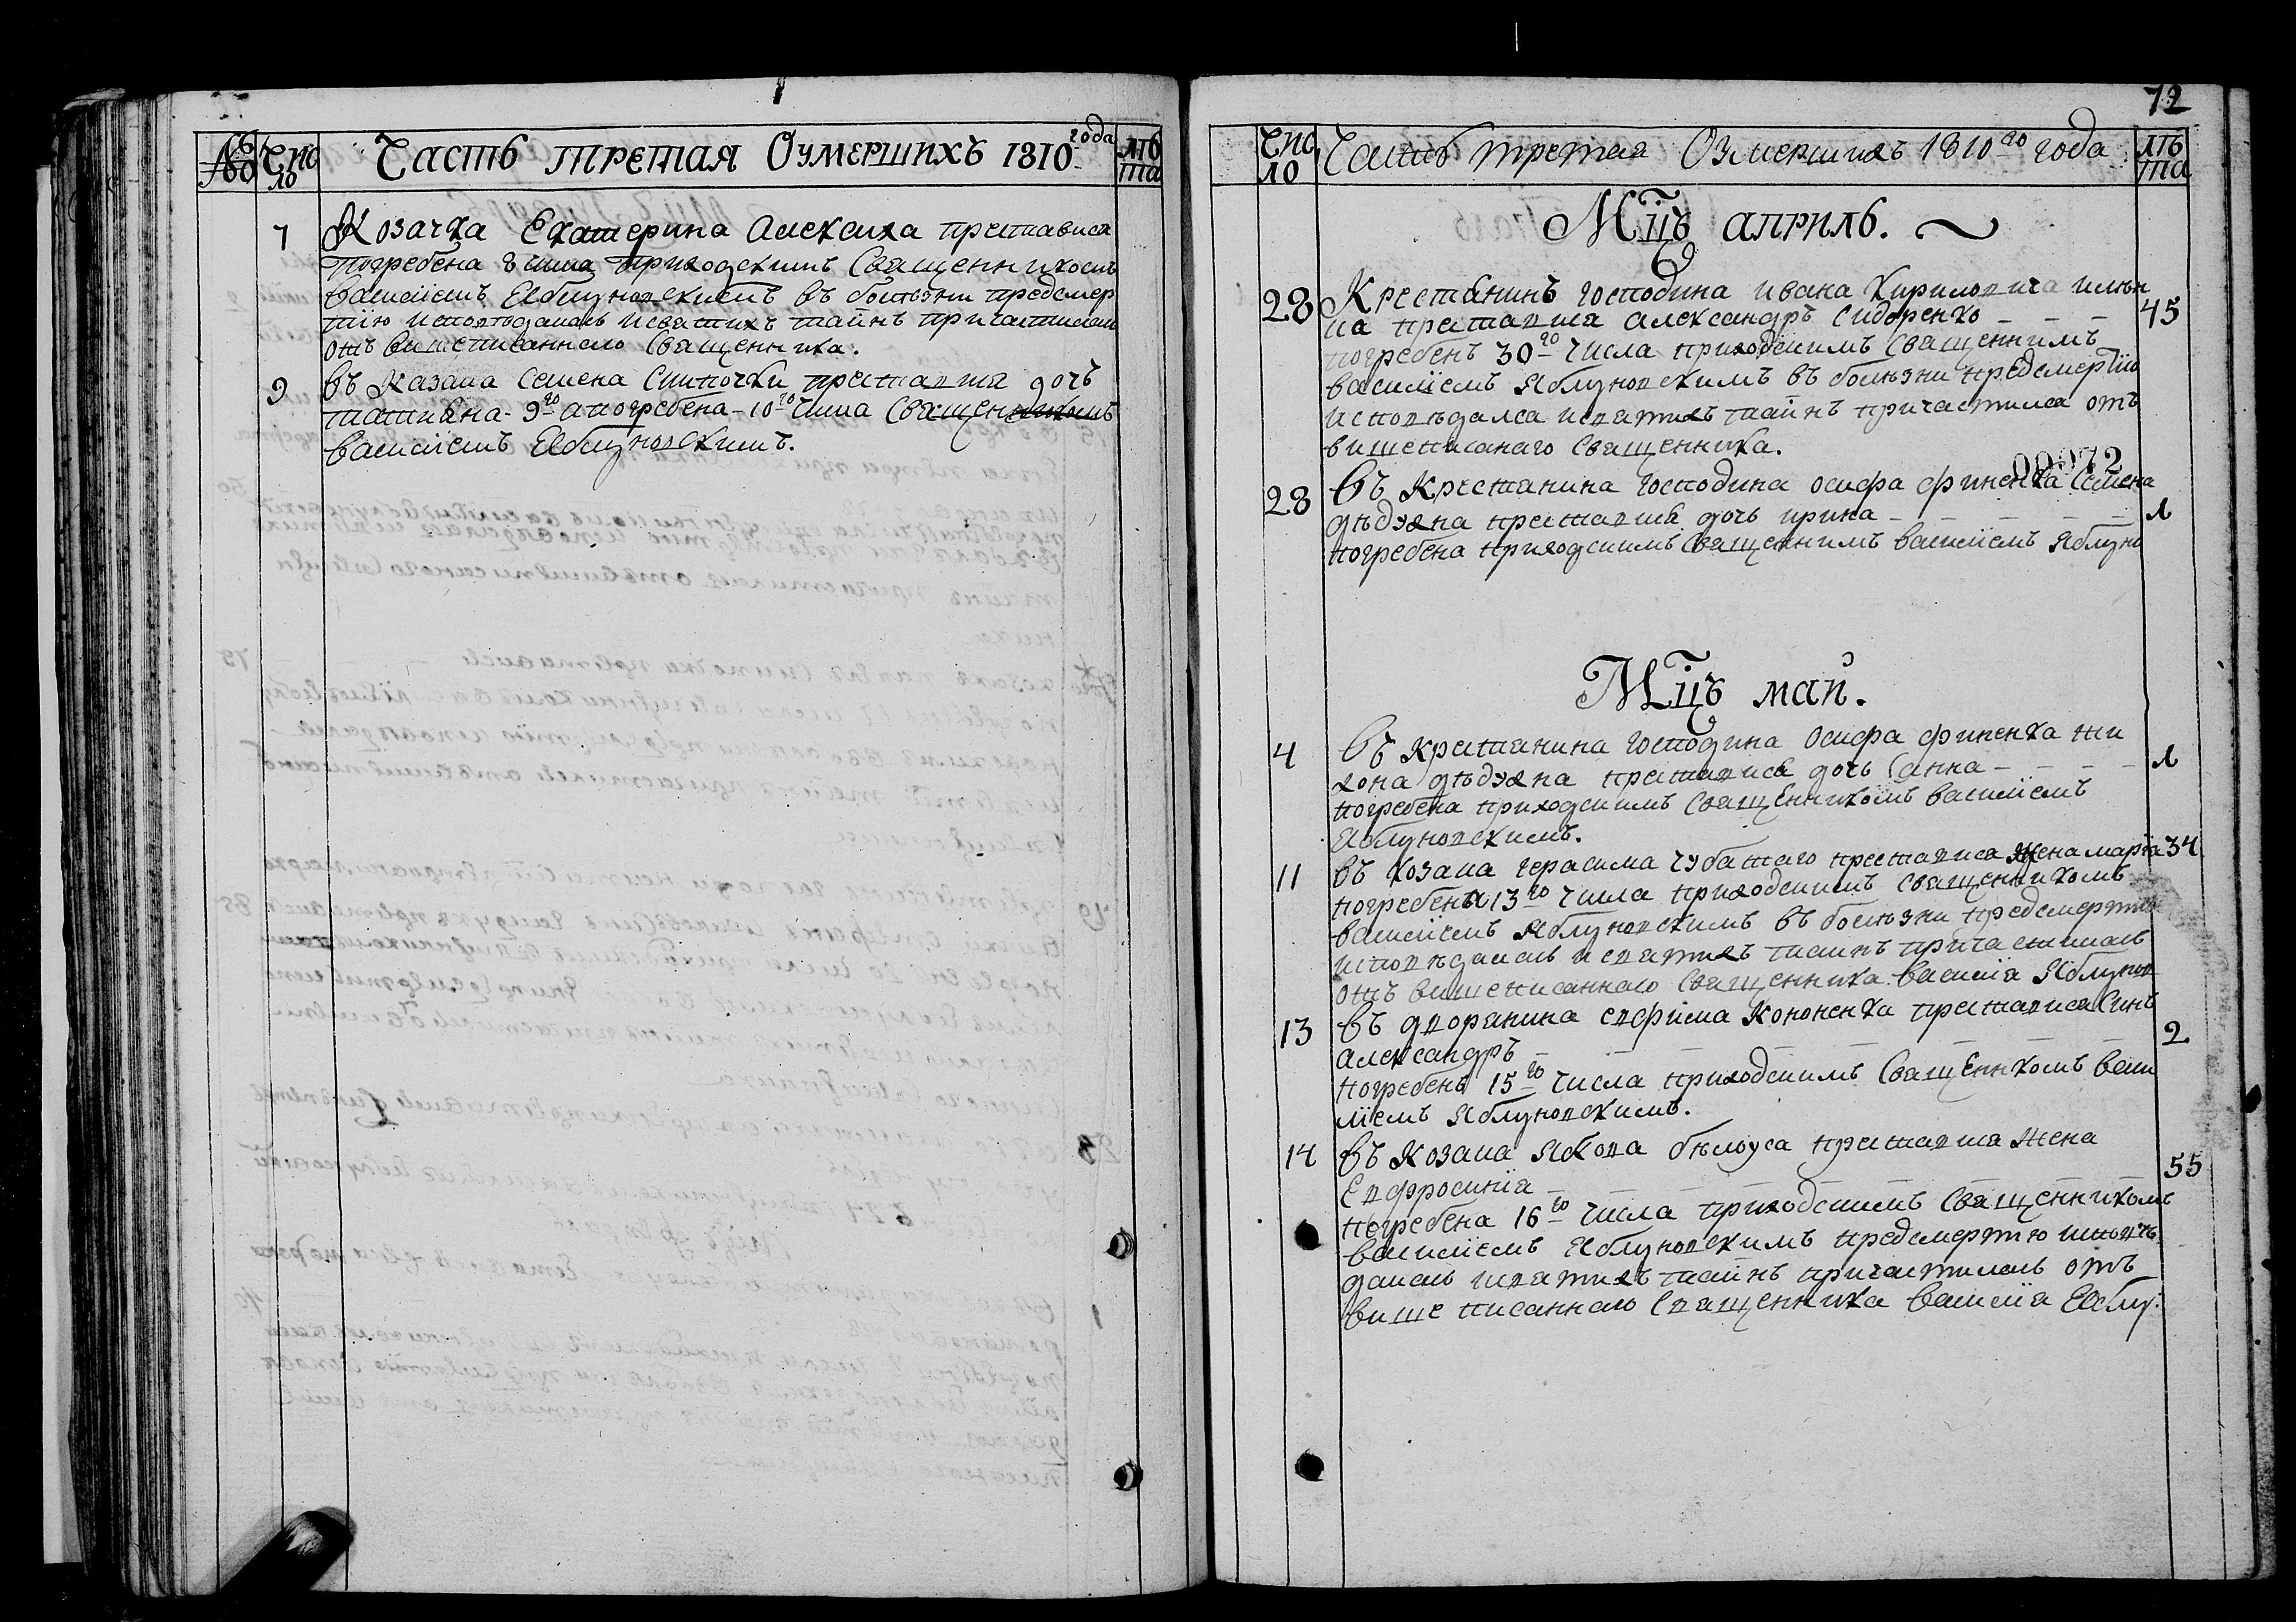 № Число Часть третая Оумершихъ 1810 года лѣта
7 Козачка Екатерина Алексиха преставися
погребена числа приходскимъ Священникомъ
василіемъ Яблуновскимъ въ болѣзни предсмер
тію исповѣдалась исвятихъ таинъ причастилась
отъ вишеписаннаго Священника.
9 въ Казака Семена Слипочки преставися дочь
татиана 9го апогребена 10го числа Священникомъ
василіемъ Яблуновскимъ.
72
Число Часть третая Озмершихъ 1810го года лѣта
Мцъ априлъ.
28 Крестанинъ господина ивана Кириловича илѣн
ка преставися александръ Сидоренко 45
погребенъ 30го числа приходскимъ Священнимъ
василіемъ Яблуновскимъ въ болѣзни предсмертію
исповѣдался исвятихъ тайнъ причастился отъ
вишеписанаго Священника.
00972
28 Въ Крестанина господина осифа финенка Семена
дѣдэха преставися дочь ирина 1
погребена приходскимъ Священнимъ василіемъ Яблуно
Мцъ май.
4 Въ Крестанина господина осифа финенка ти
хона дѣдэха преставися дочь ганна 1
погребена приходскимъ Священникомъ василіемъ
Яблуновскимъ.
11 въ козака герасима чубатаго преставися жена маріа 34
погребена 13го числа приходскимъ Священникомъ
василіемъ Яблуновскимъ въ болѣзни предсмертію
исповѣдалась исвятихъ таинъ причастилась
отъ вишеписаннаго Священника василія Яблунов
13 въ дворянина евфима Кононенка преставися Синъ
александръ 2
погребенъ 15го числа приходскимъ Священикомъ васи
ліемъ Яблуновскимъ.
14 въ Козака Якова бѣлоуса преставися жена
Евфросиніа 55
погребена 16го числа приходскимъ Священникомъ
василіемъ Яблуновскимъ предсмертю исповѣ
далась исвятихъ таинъ причастилась отъ
више писаннаго Священника василія Яблу: